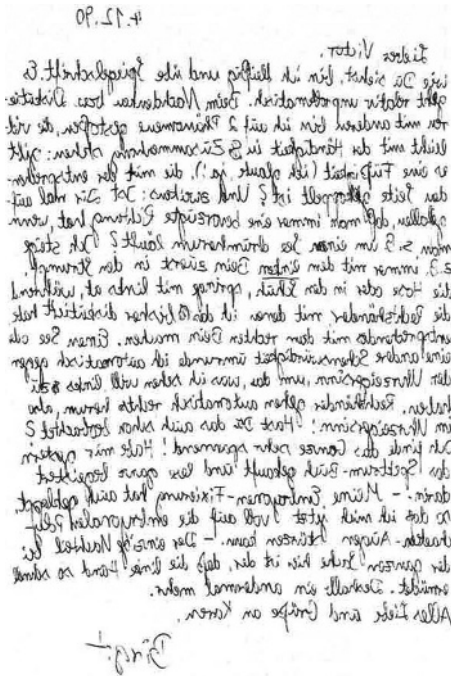 4.12.90
Lieber Victor,
wie Du siehst, bin ich fleißig und übe Spiegelschrift. Es
geht relativ unproblematisch. Beim Nachdenken bzw. Diskutie-
ren mit anderen bin ich auf 2 Phänomene gestoßen, die viel
leicht mit der Händigkeit in Zusammenhang stehen: gibt
es eine Füßigkeit (ich glaube, ja!), die mit der entsprechen-
den Seite gekoppelt ist? Und zweitens: Ist Dir mal auf-
gefallen, daß man immer eine bevorzugte Richtung hat, wenn
man z.B. um einen See drumherum läuft? Ich steige
z.B. immer mit dem linken Bein zuerst in den Strumpf,
die Hose oder in den Schuh, springe mit links ab, während
die Rechtshänder mit denen ich darüber diskutiert habe
entsprechendes mit dem rechten Bein machen. Einen See od
eine andere Sehenswürdigkeit umrunde ich automatisch gegen
den Uhrzeigersinn, um das, was ich sehen will links zu
haben. Rechtshänder gehen automatisch rechts herum, also
im Uhrzeigersinn! Hast Du das auch schon beobachtet?
Ich finde das Ganze sehr spannend! Habe mir gestern
das Spektrum-Buch gekauft und lese ganz begeistert
darin. - Meine Embryonen-Fixierung hat auch geklappt,
so daß ich mich jetzt voll auf die embryonalen
-Augen stürzen kann. - Der einzige Nachteil bei
der ganzen Sache hier ist der, daß die linke Hand so schnell
ermüdet. Deshalb: ein andermal mehr.
Alles Liebe und Grüße an Karen,
Birgit